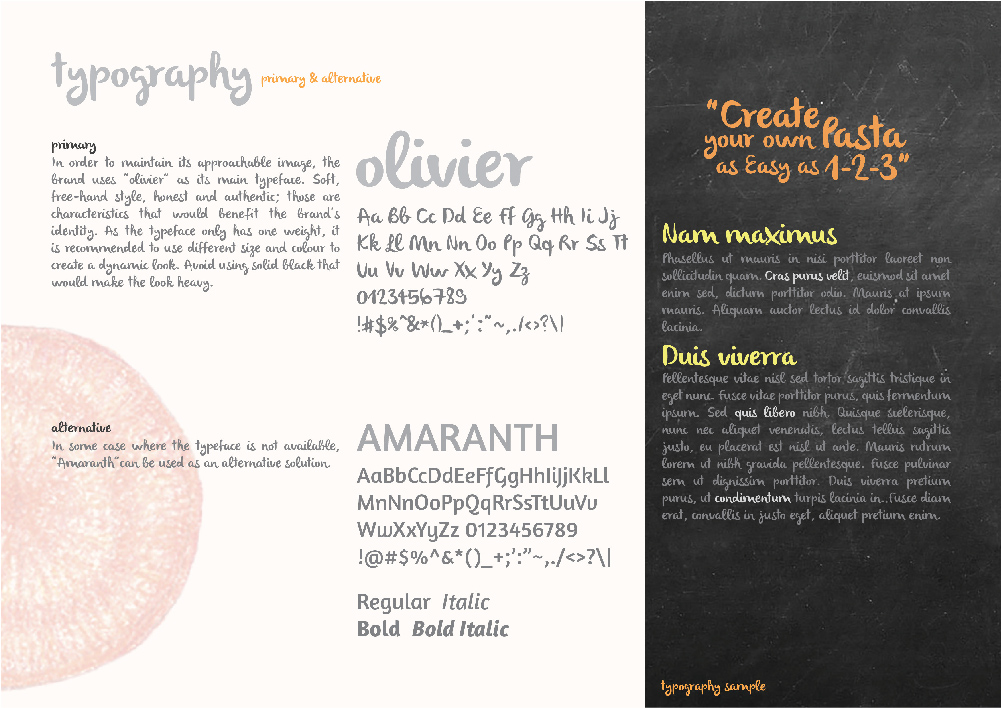 typography primary & alternative
primary
In order to maintain its approachable image, the
brand uses "olivier" as its main typeface. Soft,
free-hand style, honest and authentic; those are
characteristics that would benefit the brand's
identity. As the typeface only has one weight, it
is recommended to use different size and colour to
create a dynamic look. Avoid using solid black that
would make the look heavy.
olivier
Aa Bb Cc Dd Ee Ff Gg Hh Ii Jj
Kk Ll Mm Nn Oo Pp Qq Rr Ss Tt
Uu Vv Ww Xx Yy Zz
0123456789
!#$%^&*()_+;':"~,./<>?\|
alternative
In some case where the typeface is not available,
"Amaranth"can be used as an alternative solution.
AMARANTH
AaBbCcDdEeFfGgHhIiJjKkLl
MmNnOoPpQqRrSsTtUuVv
WwXxYyZz 0123456789
!@#$%^&*()_+;':"~,./<>?\|
Regular Italic
Bold Bold Italic
"Create
your own Pasta
as Easy as 1-2-3"
Nam maximus
Phasellus ut mauris in nisi porttitor laoreet non
sollicitudin quam. Cras purus velit, euismod sit amet
enim sed, dictum porttitor odio. Mauris at ipsum
mauris. Aliquam auctor lectus id dolor convallis
lacinia.
Duis viverra
Pellentesque vitae nisl sed tortor sagittis tristique in
eget nunc. Fusce vitae porttitor purus, quis fermentum
ipsum. Sed quis libero nibh. Quisque scelerisque,
nunc nec aliquet venenatis, lectus tellus sagittis
justo, eu placerat est nisl ut ante. Mauris rutrum
lorem ut nibh gravida pellentesque. Fusce pulvinar
sem ut dignissim porttitor. Duis viverra pretium
purus, ut condimentum turpis lacinia in. Fusce diam
erat, convallis in justo eget, aliquet pretium enim.
typography sample